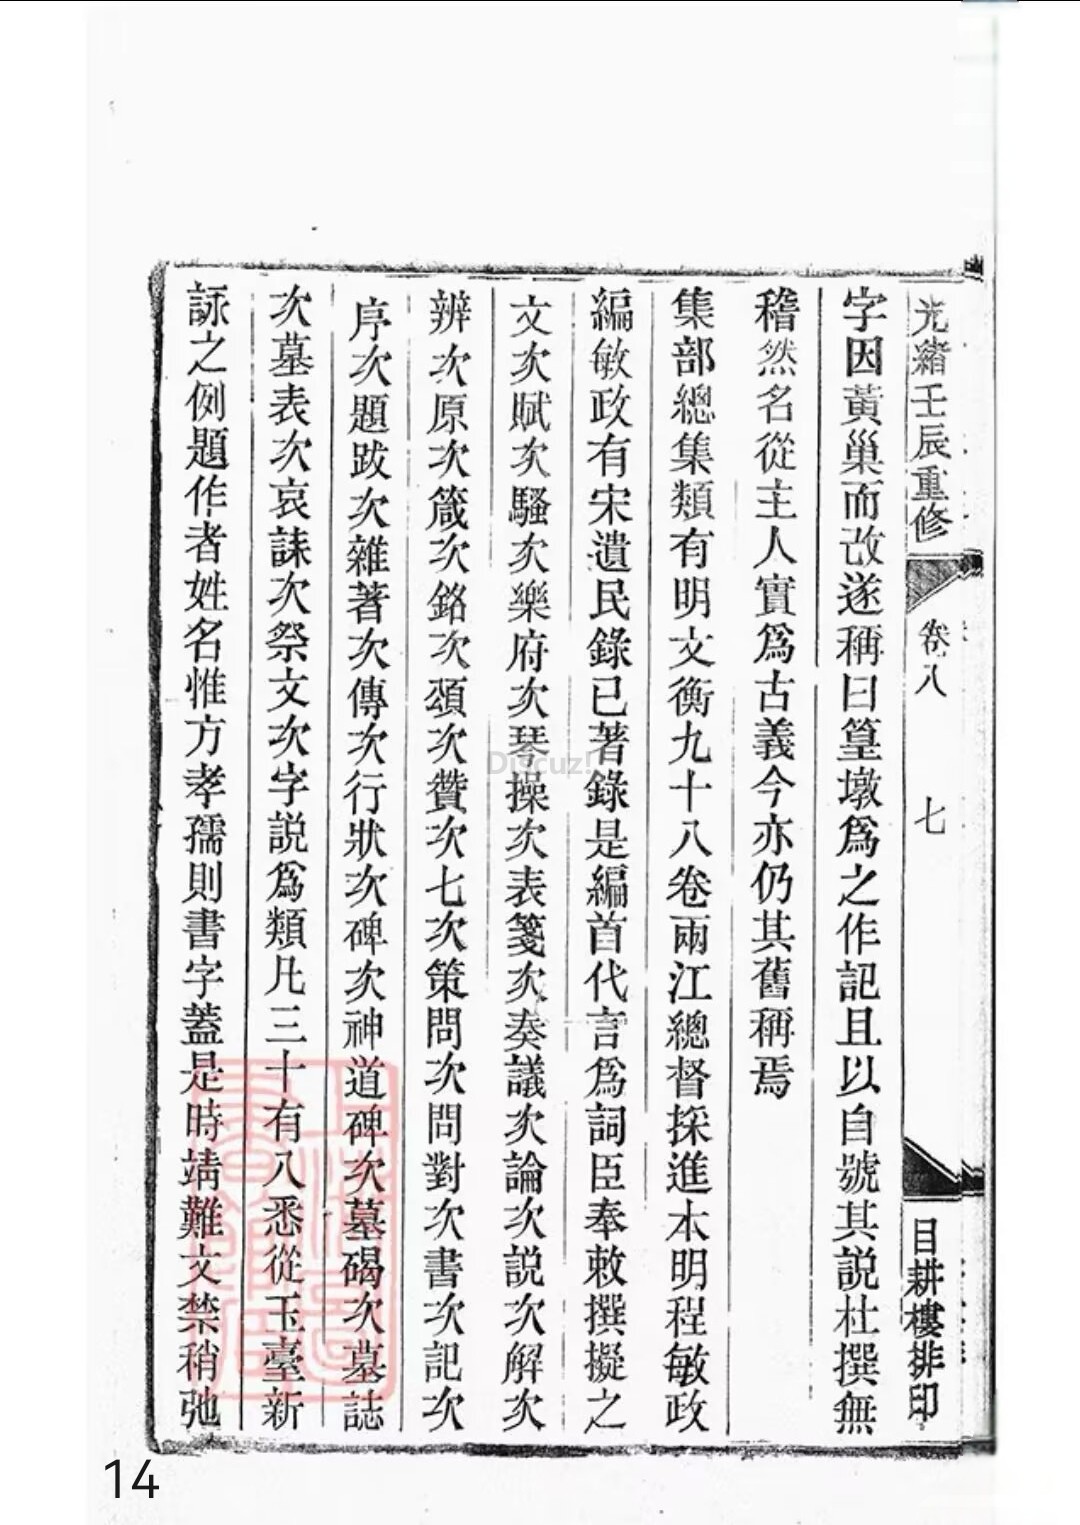 光緒壬辰重修
卷八
七
目耕樓排印
字因黃巢而改遂稱曰篁墩爲之作記且以自號其説杜撰無
稽然名從主人實爲古義今亦仍其舊稱焉
集部總集類有明文衡九十八卷兩江總督採進本明程敏政
編敏政有宋遺民錄已著錄是編首代言爲詞臣奉敕撰擬之
文次賦次騷次樂府次琴操次表箋次奏議次論次説次解次
辨次原次箴次銘次頌次贊次七次策問次問對次書次記次
序次題跋次雜著次傳次行狀次碑次神道碑次墓碣次墓誌
次墓表次哀誄次祭文次字説爲類凡三十有八悉從玉臺新
詠之例題作者姓名惟方孝孺則書字蓋是時靖難文禁稍弛
上海圖書館藏
Discuz!
14